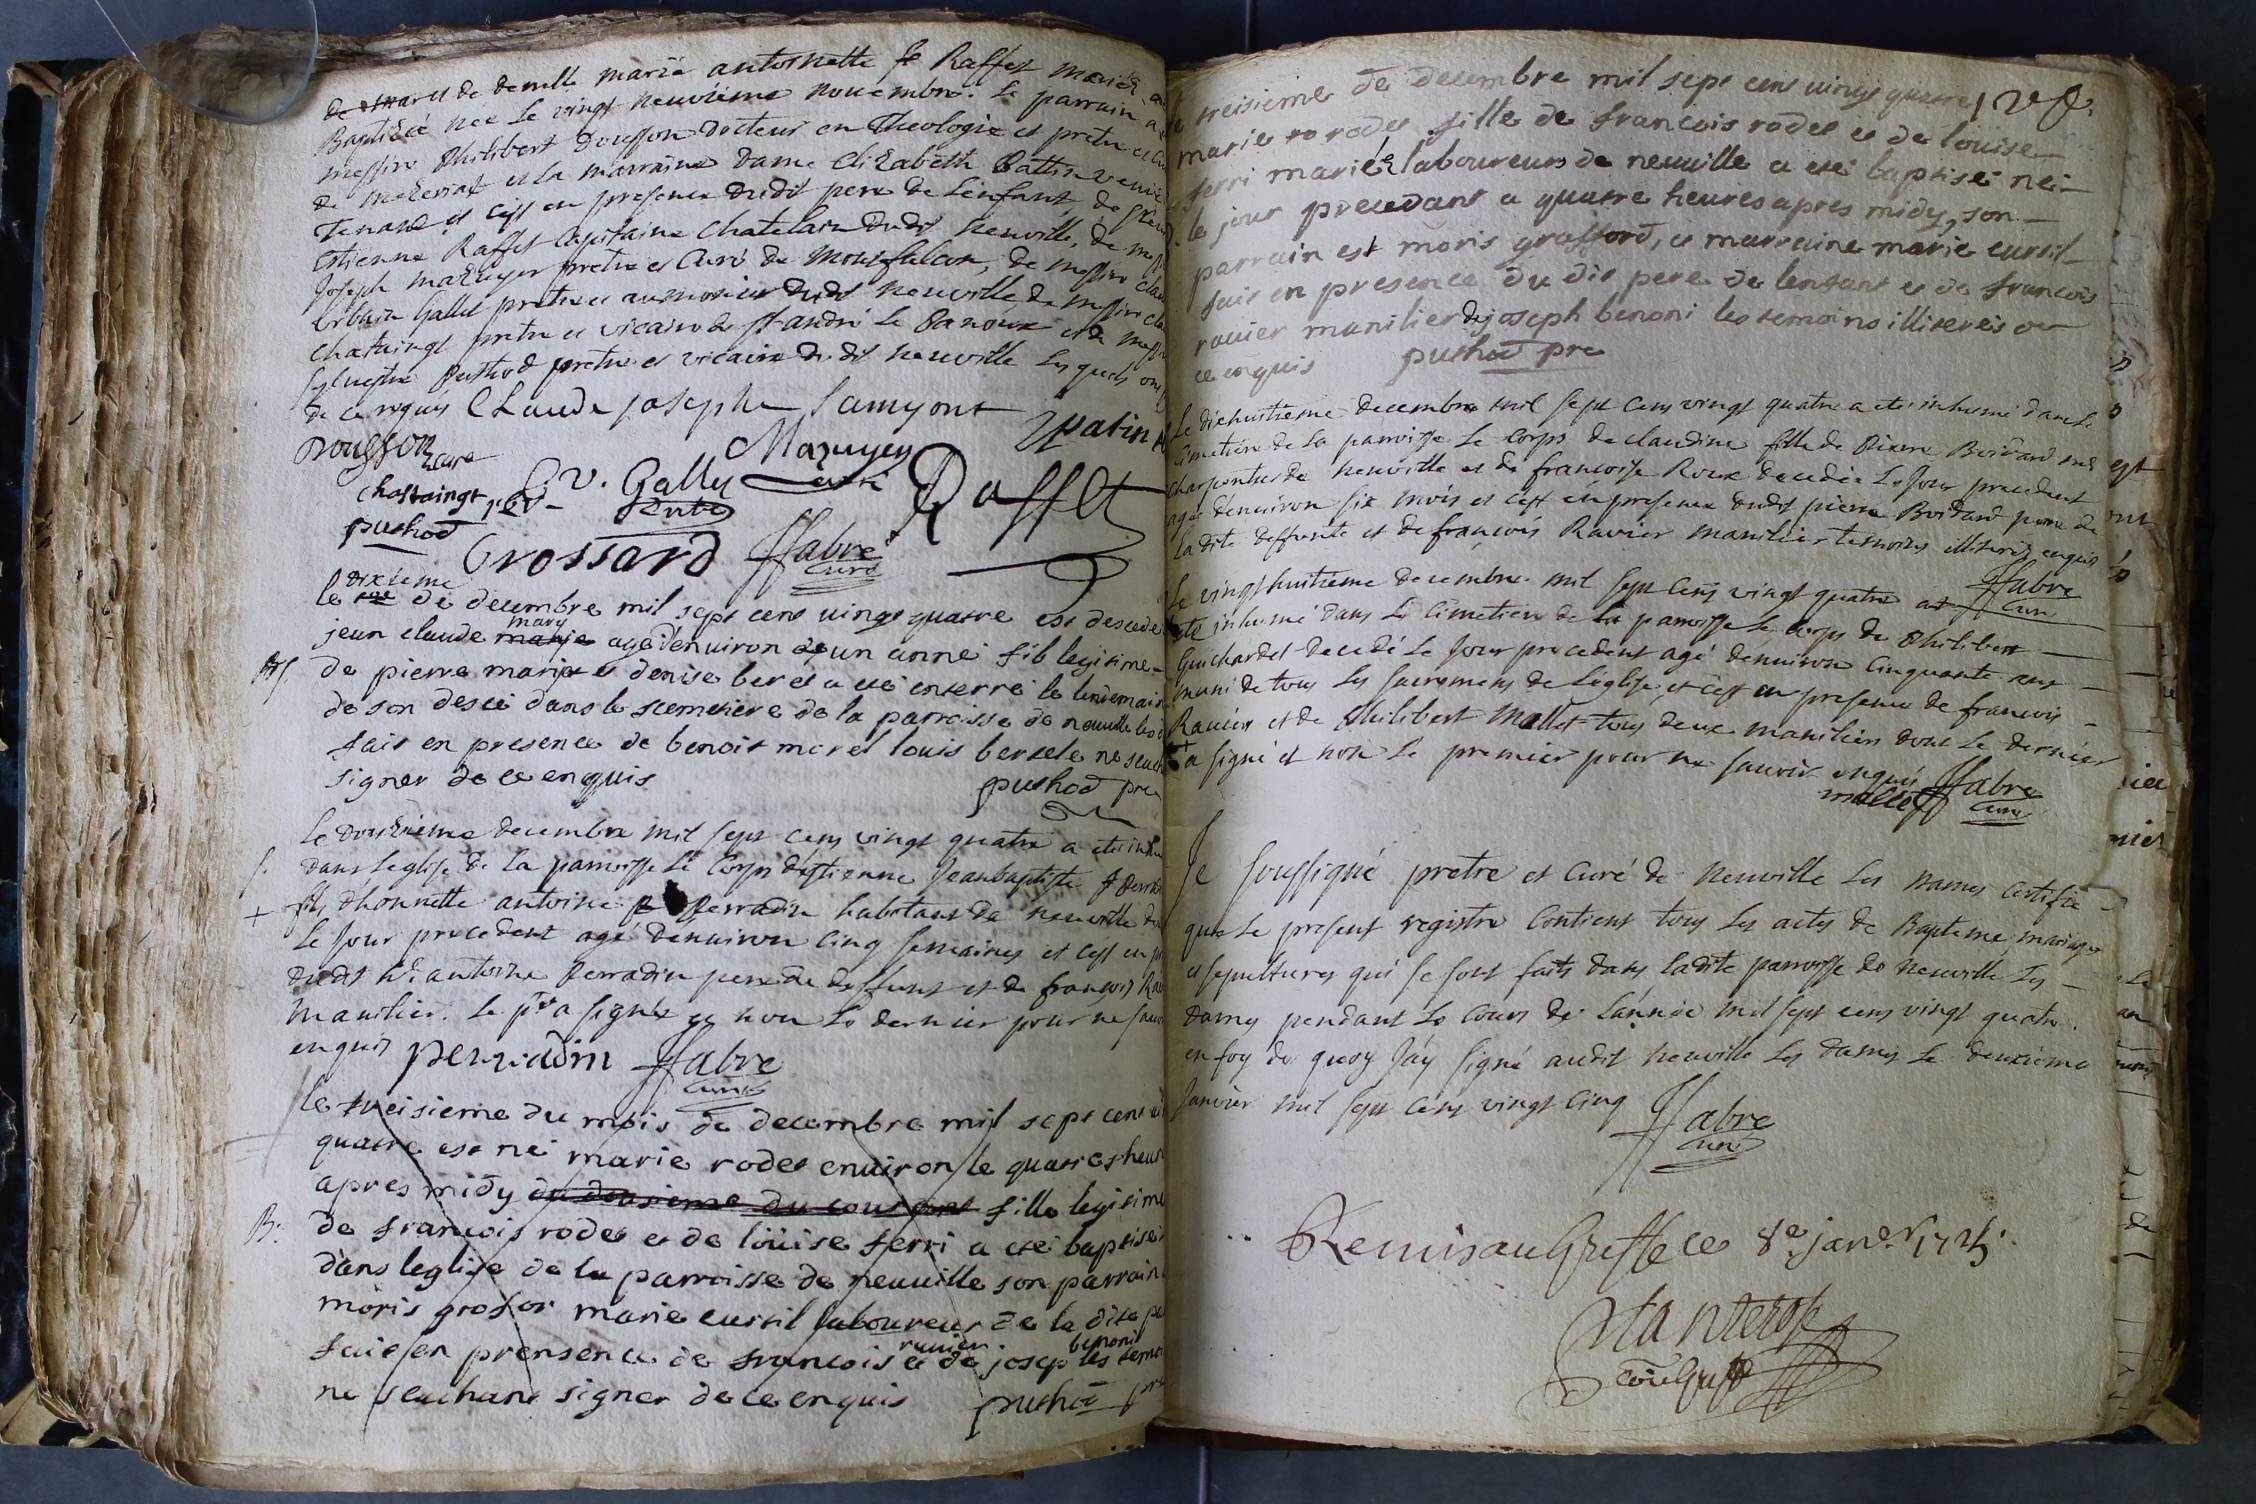 de demlle marie antoinette Raffet mariés
Baptisée nee le vingt neuvieme novembre. Le parrain a
messire Philibert Dousson docteur en Theologie et pretre et Curé
de mezeriat et la marraine dame Elizabeth Pattin veuve
Tenand et c'est en presence dudit pere de l'enfant de
Estienne Raffet Capitaine Chatelain dudit neuville, de messire
Joseph mazuyer pretre et Curé de Montfalcon, de messire claude
Urbain Gallet pretre et aumonier dudit neuville, de messire
Chataingt pretre et vicaire de St andré le Panoux et de messire
Sylvestre Puthod pretre et vicaire dudit neuville les quels ont
de ce enquis Claude josephe Samyont E patin
Dousson curé Mazuyer curé
chastaingt C. V. Gallet Raffet
puthod Crossard ffabre curé
dixieme
le de decembre mil sept cens vingt quatre est descedé
mary
jean claude marie agé d'enuiron un année fils legitime
de pierre marie et denise beret a eté enterré le lendemain
de son descé dans le scemetiere de la parroisse de neuville les
fait en presence de benoit morel louis bertele ne seach
signer de ce enquis puthod pre
Le douzieme decembre mil sept cens vingt quatre a eté inhu
S. dans l'eglise de la parroisse le Corps d'estienne Jeanbaptiste
+ fils d'honnette antoine perradin habitant de neuville
le jour precedent agé d'enuiron cinq semaines et c'est en
dudit hte antoine perradin pere de deffunt et de françois
manilier. Le pr a signé et non le dernier pour ne
enquis perradin ffabre
curé
le treisieme du mois de decembre mil sept cens
quatre est né marie rodet enuiron le quatres heur
apres midy du dousieme du courant fille legitime
B. de francois rodet et de loüise ferri a eté baptisé
dans leglise de la parroisse de neuville son parrain
moris grofor marie curtil laboureur de la dite
ravier benoni
fait en prensence de francois et de josep les temoi
ne seachant signer de ce enquis puthod pre
le treisieme de decembre mil sept cens vingt quatre
marie rodet fille de francois rodet et de louise
ferri mariés laboureurs de neuville a eté baptisé né
le jour precedant a quatre heures apres midy, son
parrain est moris grafford, et marraine marie curtil
fait en presence du dit pere de lenfant et de francois
rauier manilier de joseph benoni les temoins illiterés
ce enquis puthod pre
Le dixhuitieme decembre mil sept cens vingt quatre a eté inhumé dans le
Cimetiere de la parroisse le corps de claudine fille de Pierre Boidard
charpentier de neuville et de francoise Roux decedée le jour precedent
agée d'enuiron six mois et c'est en presence dudit pierre Boidard pere de
la dite deffunte et de françois Ravier manilier temoins illiterés enquis
ffabre
curé
Le vingt huitieme decembre mil sept cens vingt quatre a
eté inhumé dans le Cimetiere de la parroisse le corps de Philibert
Guichardet decedé le jour precedent agé denuiron Cinquante ans
muni de tous les sacremens de l'eglise, et c'est en presence de francois
Ravier et de Philibert Mallet tous deux maniliers dont le dernier
a signé et non le premier pour ne savoir enquis ffabre
mallet curé
Je soussigné pretre et Curé de neuville les Dames certifie
que le present registre Contient tous les actes de Bapteme mariages
et sepultures qui se sont faits dans ladite parroisse de neuville les
Dames pendant le Cours de l'année mil sept cens vingt quatre.
en foy de quoy j'ay signé audit neuville les Dames le deuxieme
Janvier mil sept cens vingt cinq ffabre
curé
Remis au Greffe ce 8e janer 1725.